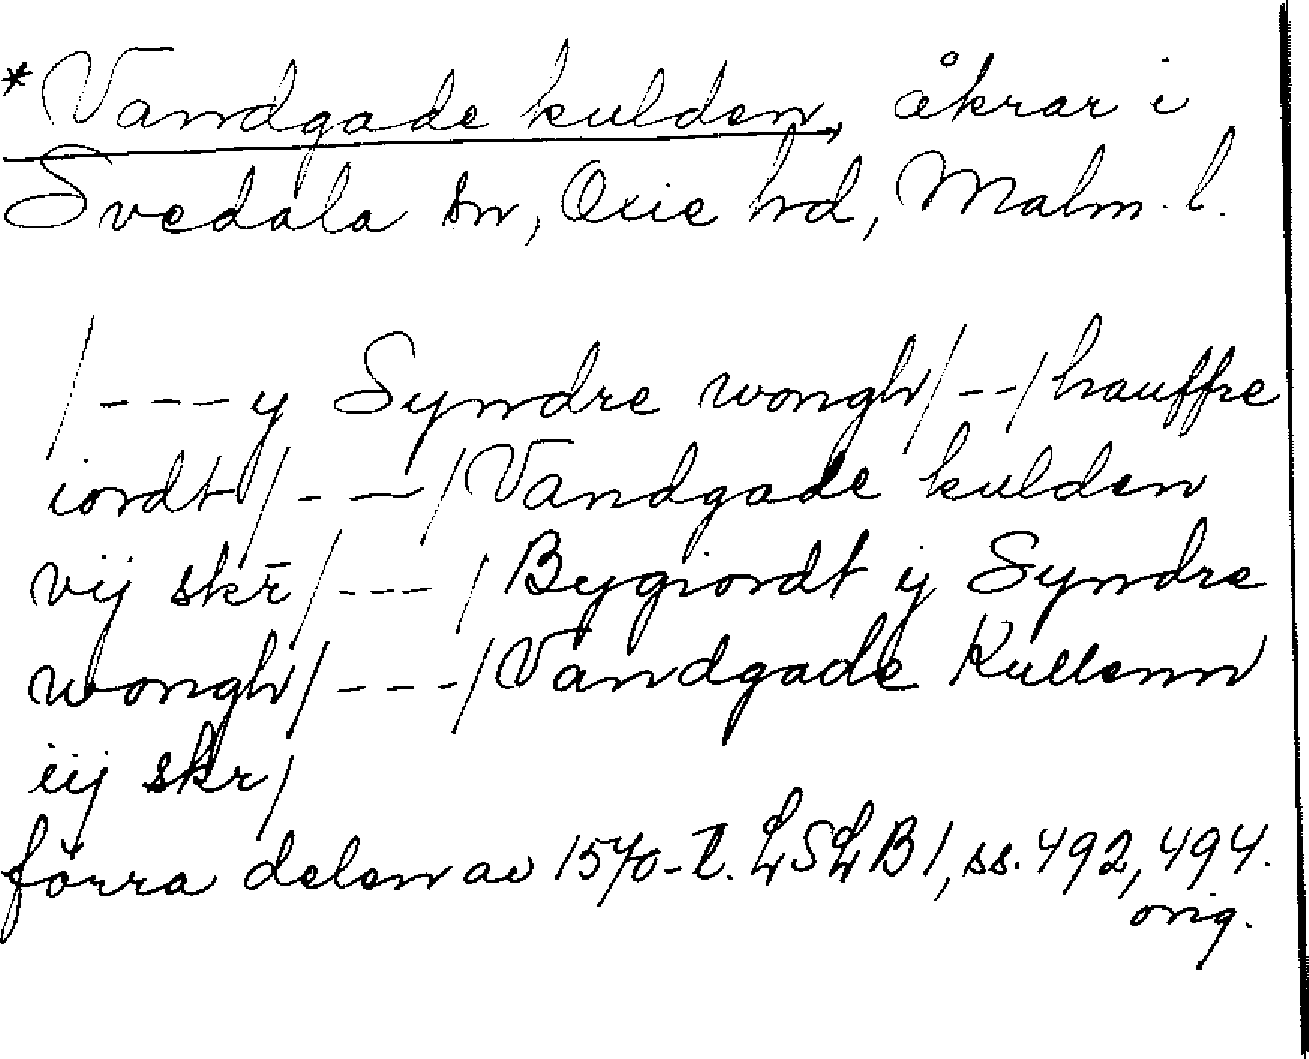 *Vandgade kulden, åkrar i
Svedala sn, Oxie hd, Malm. l.
/---y Syndre wongh/--/hauffre
iordt/---/Vandgade kulden
vij skr̄/---/Bygiordt ij Syndre
wongh/---/Vandgade Kullenn
iij skr/
förra delen av 1570-t. LSLB1, ss. 492, 494.
orig.